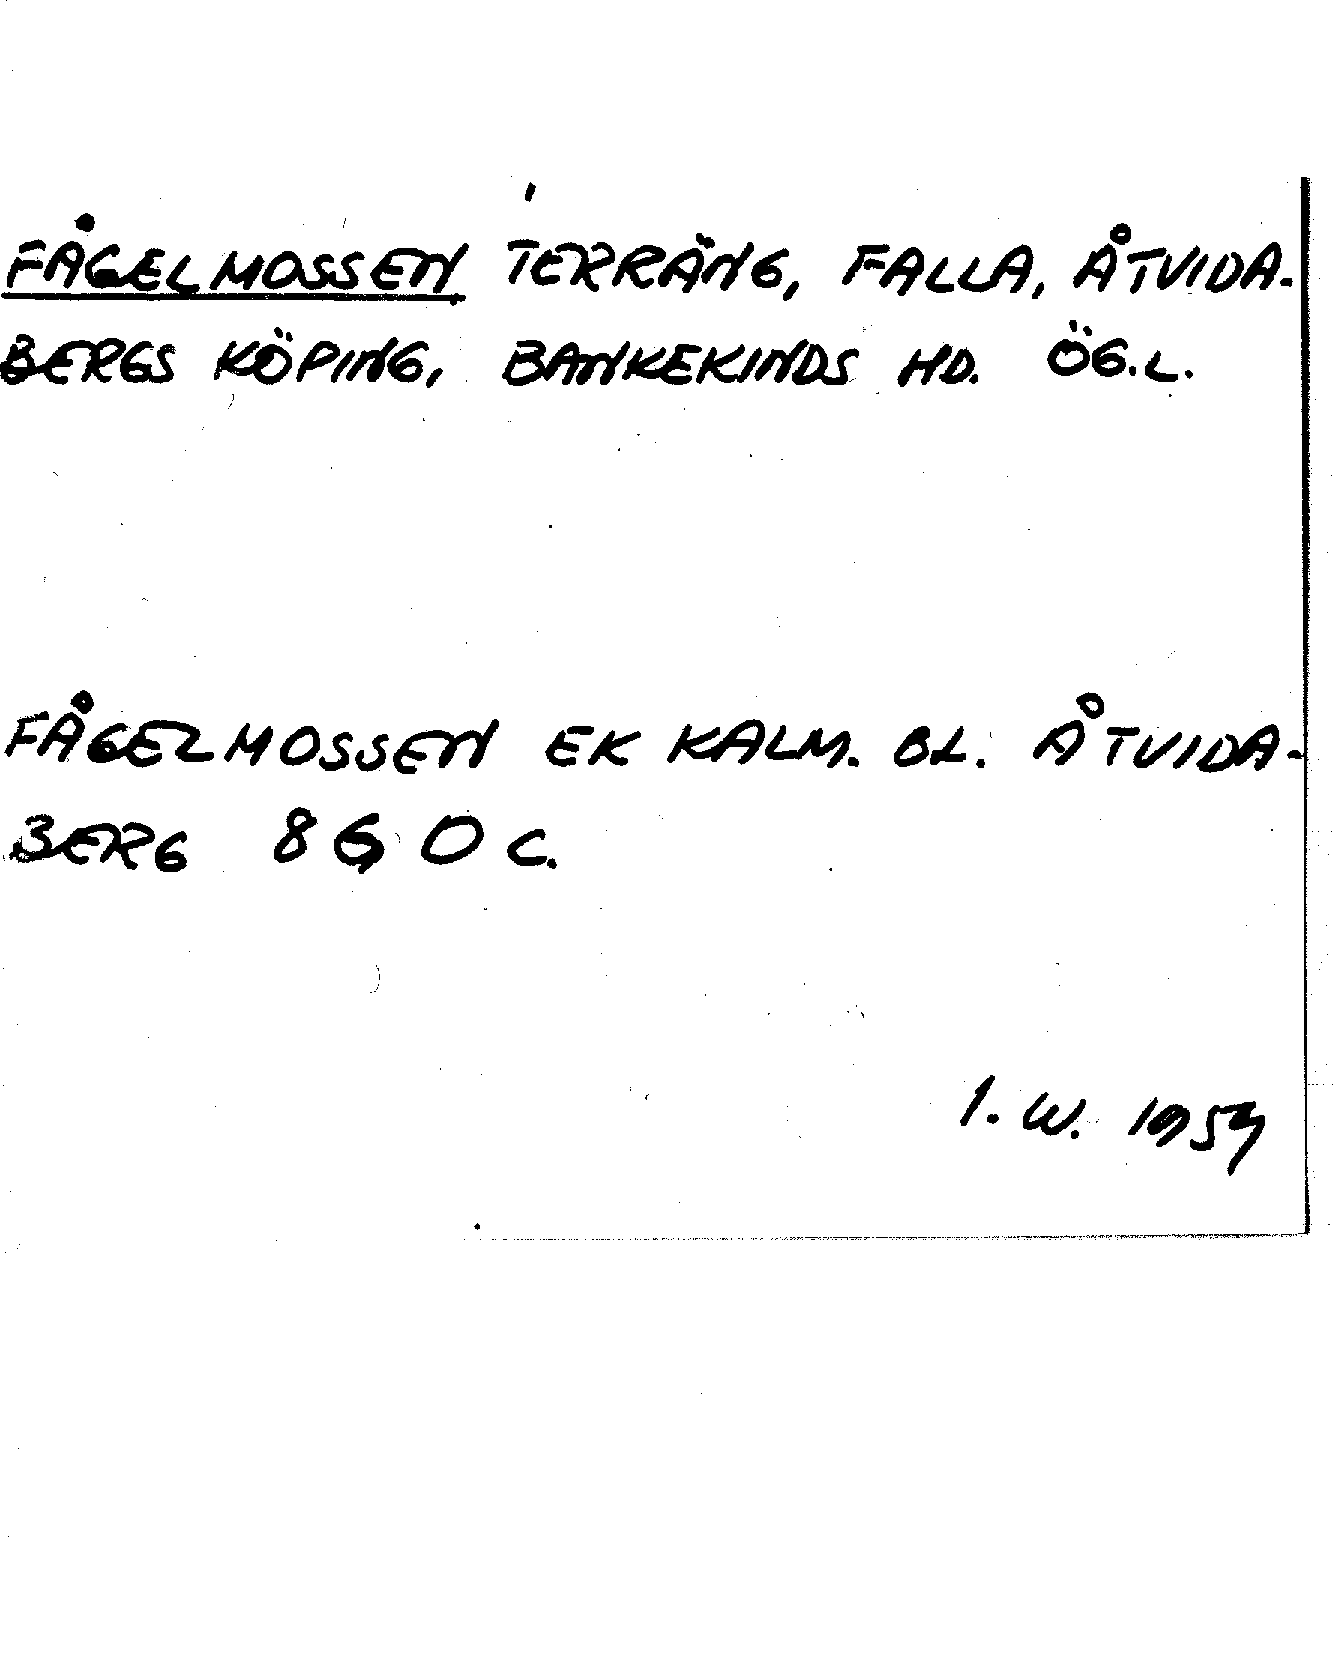 FÅGELMOSSEN TERRÄNG, FALLA, ÅTVIDA-
BERGS KÖPING, BANKEKINDS HD. ÖG.L.
FÅGELMOSSEN EK KALM. BL. ÅTVIDA-
BERG 8G0c.
I.W. 1957